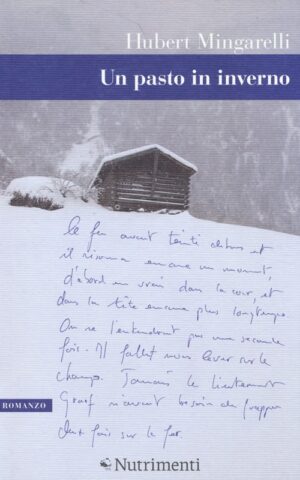 Hubert Mingarelli
Un pasto in inverno
Le fer avait tinté dehors et
il résonna encore un moment,
d'abord en vrai dans la cour, et
dans la tête encore plus longtemps.
On ne l'entendrait pas une seconde
fois. Il fallut nous lever sur le
champ. Jamais le lieutenant
Graaf n'avait besoin de frapper
deux fois sur le fer.
ROMANZO
Nutrimenti